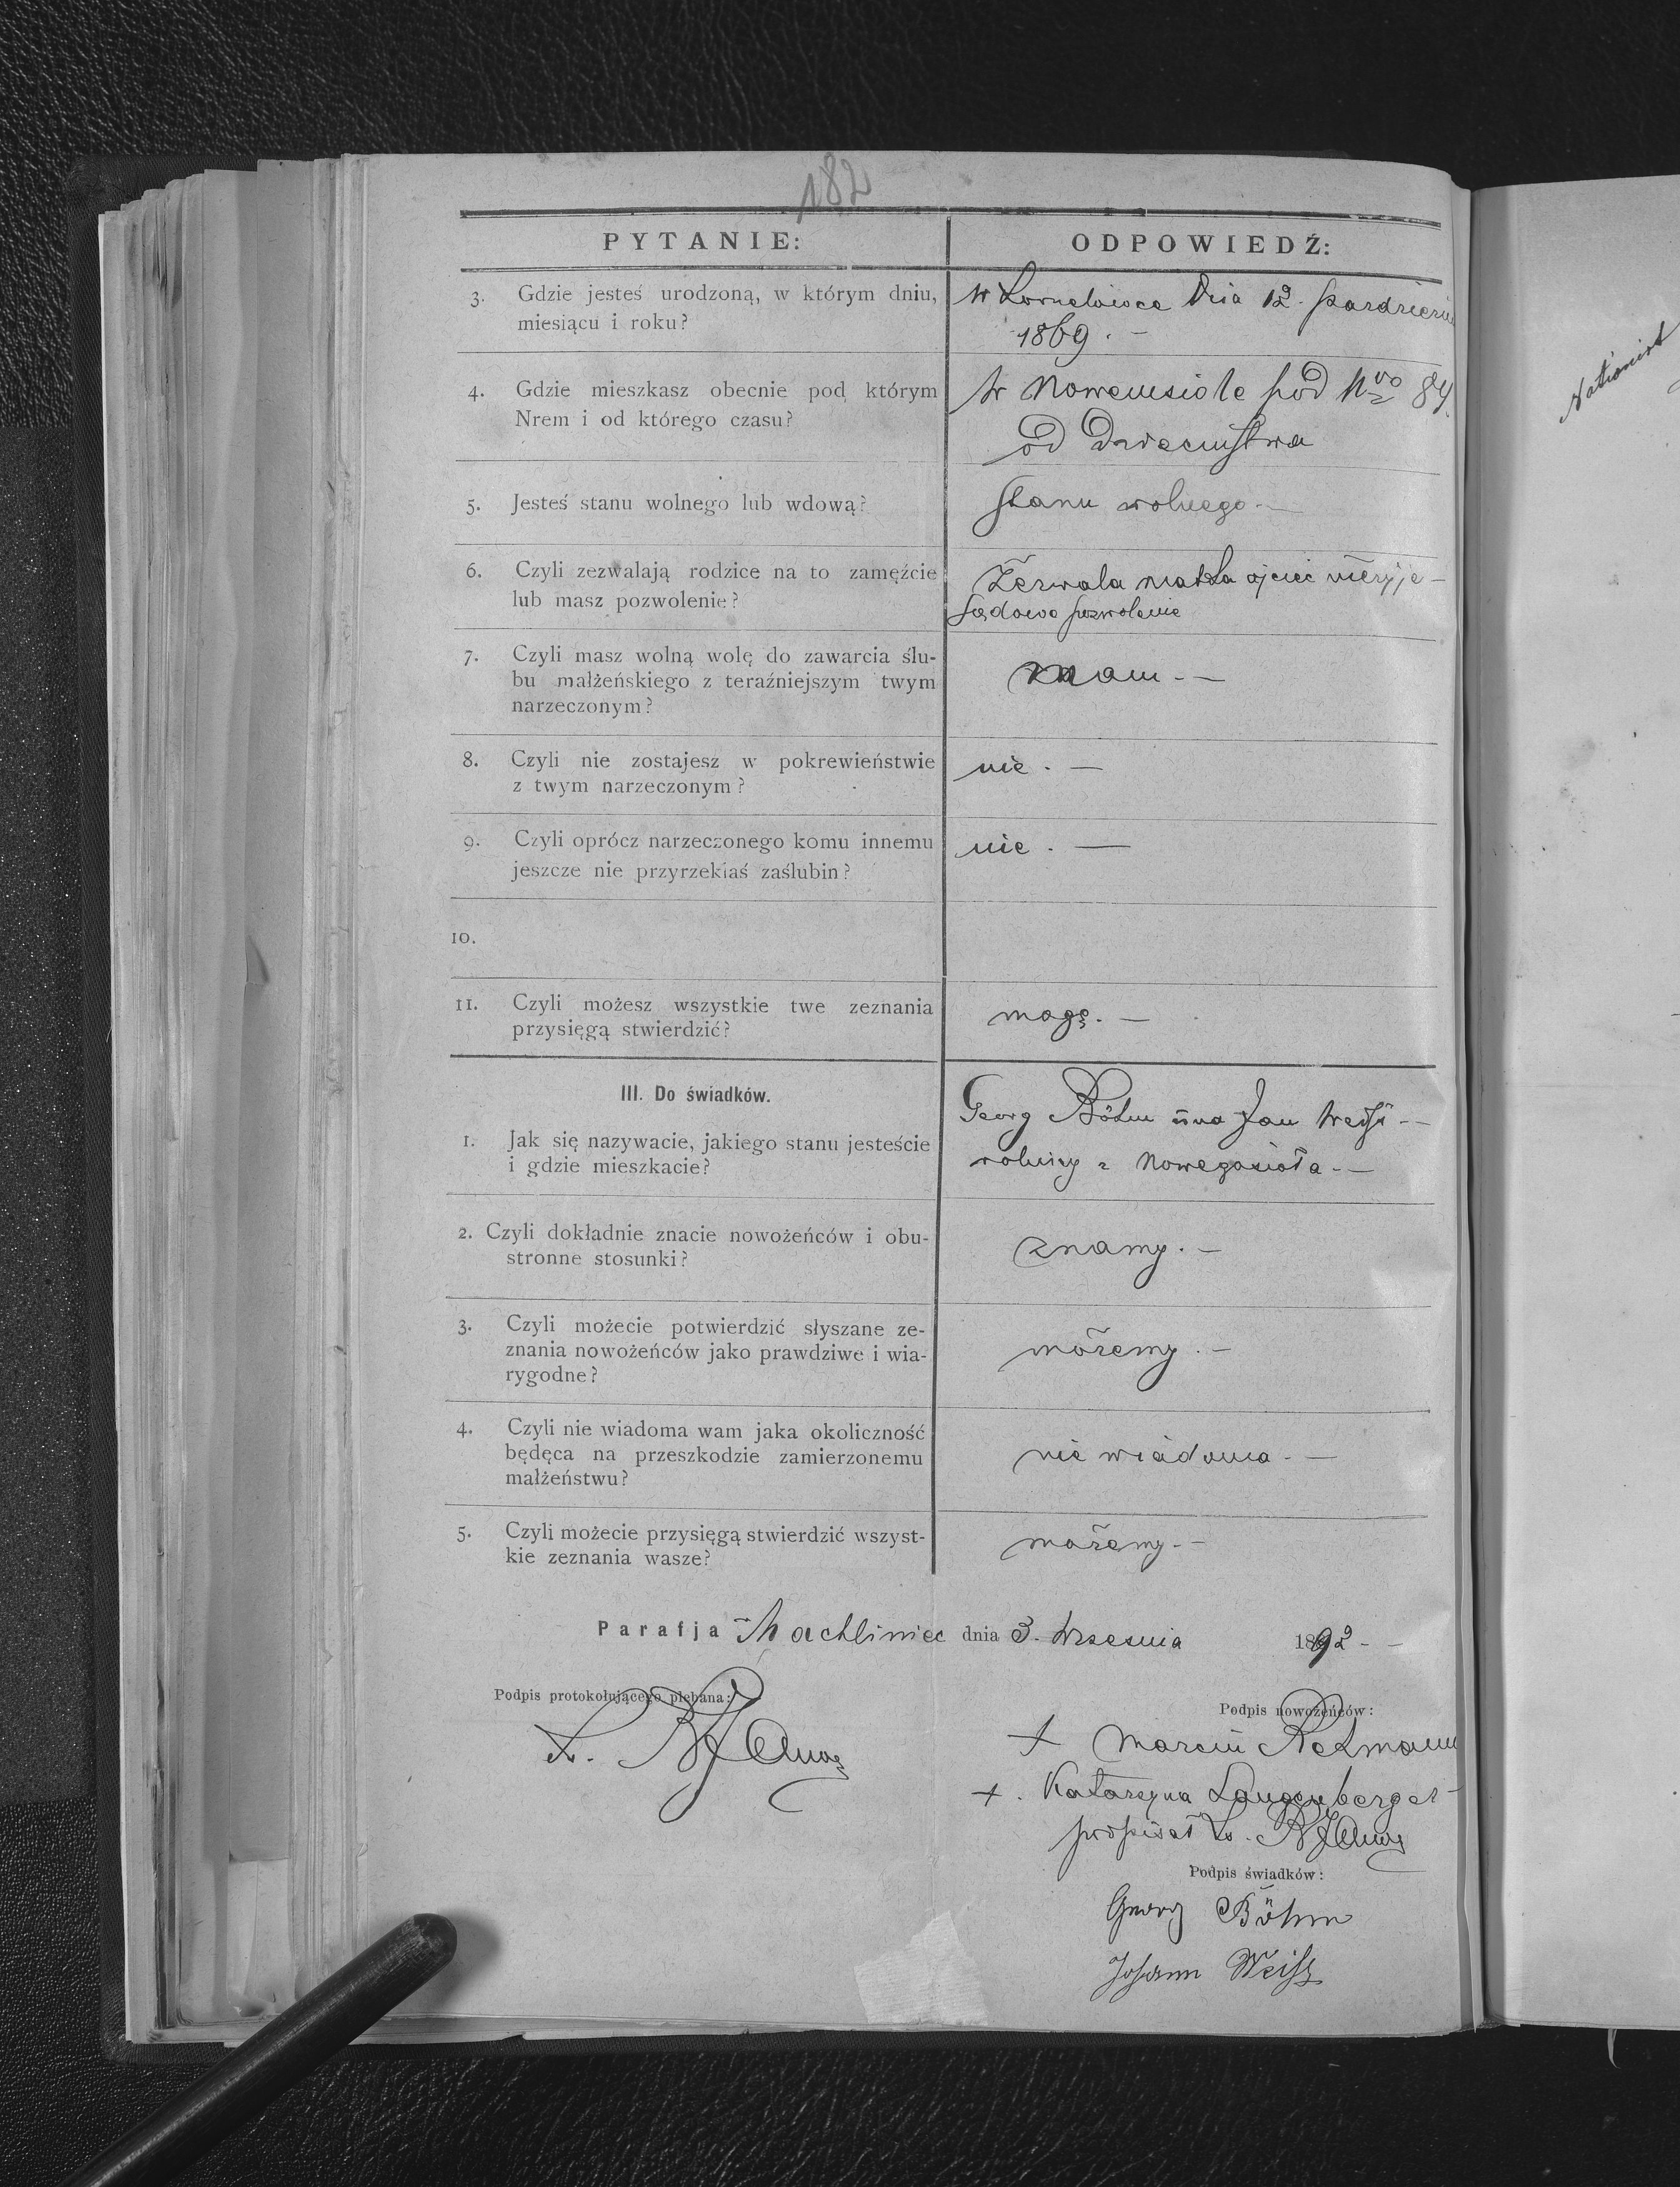 182
PYTANIE:
ODPOWIEDŹ:
3. Gdzie jesteś urodzoną, w którym dniu,
miesiącu i roku?
W dnia 12.
1869. –
4. Gdzie mieszkasz obecnie pod którym
Nrem i od którego czasu?
W Nowemsiole pod Nro 84.
od
5. Jesteś stanu wolnego lub wdową?
stanu wolnego –
6. Czyli zezwalają rodzice na to zamęźcie
lub masz pozwolenie?
Zezwala matka ojciec nieżyje –
sądowe pozwolenie
7. Czyli masz wolną wolę do zawarcia ślu-
bu małżeńskiego z teraźniejszym twym
narzeczonym?
mam –
8. Czyli nie zostajesz w pokrewieństwie
z twym narzeczonym?
nie. –
9. Czyli oprócz narzeczonego komu innemu
jeszcze nie przyrzekłaś zaślubin?
nie. –
10.
11. Czyli możesz wszystkie twe zeznania
przysięgą stwierdzić?
mogę. –
III. Do świadków.
1. Jak się nazywacie, jakiego stanu jesteście
i gdzie mieszkacie?
Georg Böhm Jan Weiss –
rolnicy z Nowegosioła –
2. Czyli dokładnie znacie nowożeńców i obu-
stronne stosunki?
znamy. –
3. Czyli możecie potwierdzić słyszane ze-
znania nowożeńców jako prawdziwe i wia-
rygodne?
możemy. –
4. Czyli nie wiadoma wam jaka okoliczność
będęca na przeszkodzie zamierzonemu
małżeństwu?
nie wiadoma –
5. Czyli możecie przysięgą stwierdzić wszyst-
kie zeznania wasze?
możemy –
Parafja Machliniec dnia 3. Września 1892 –
Podpis protokołującego plebana:
Podpis nowożeńców:
+ Marcin Retmann
+. Katarzyna Langenberger
podpisał X.
Podpis świadków:
Georg Böhm
Johann Weiss